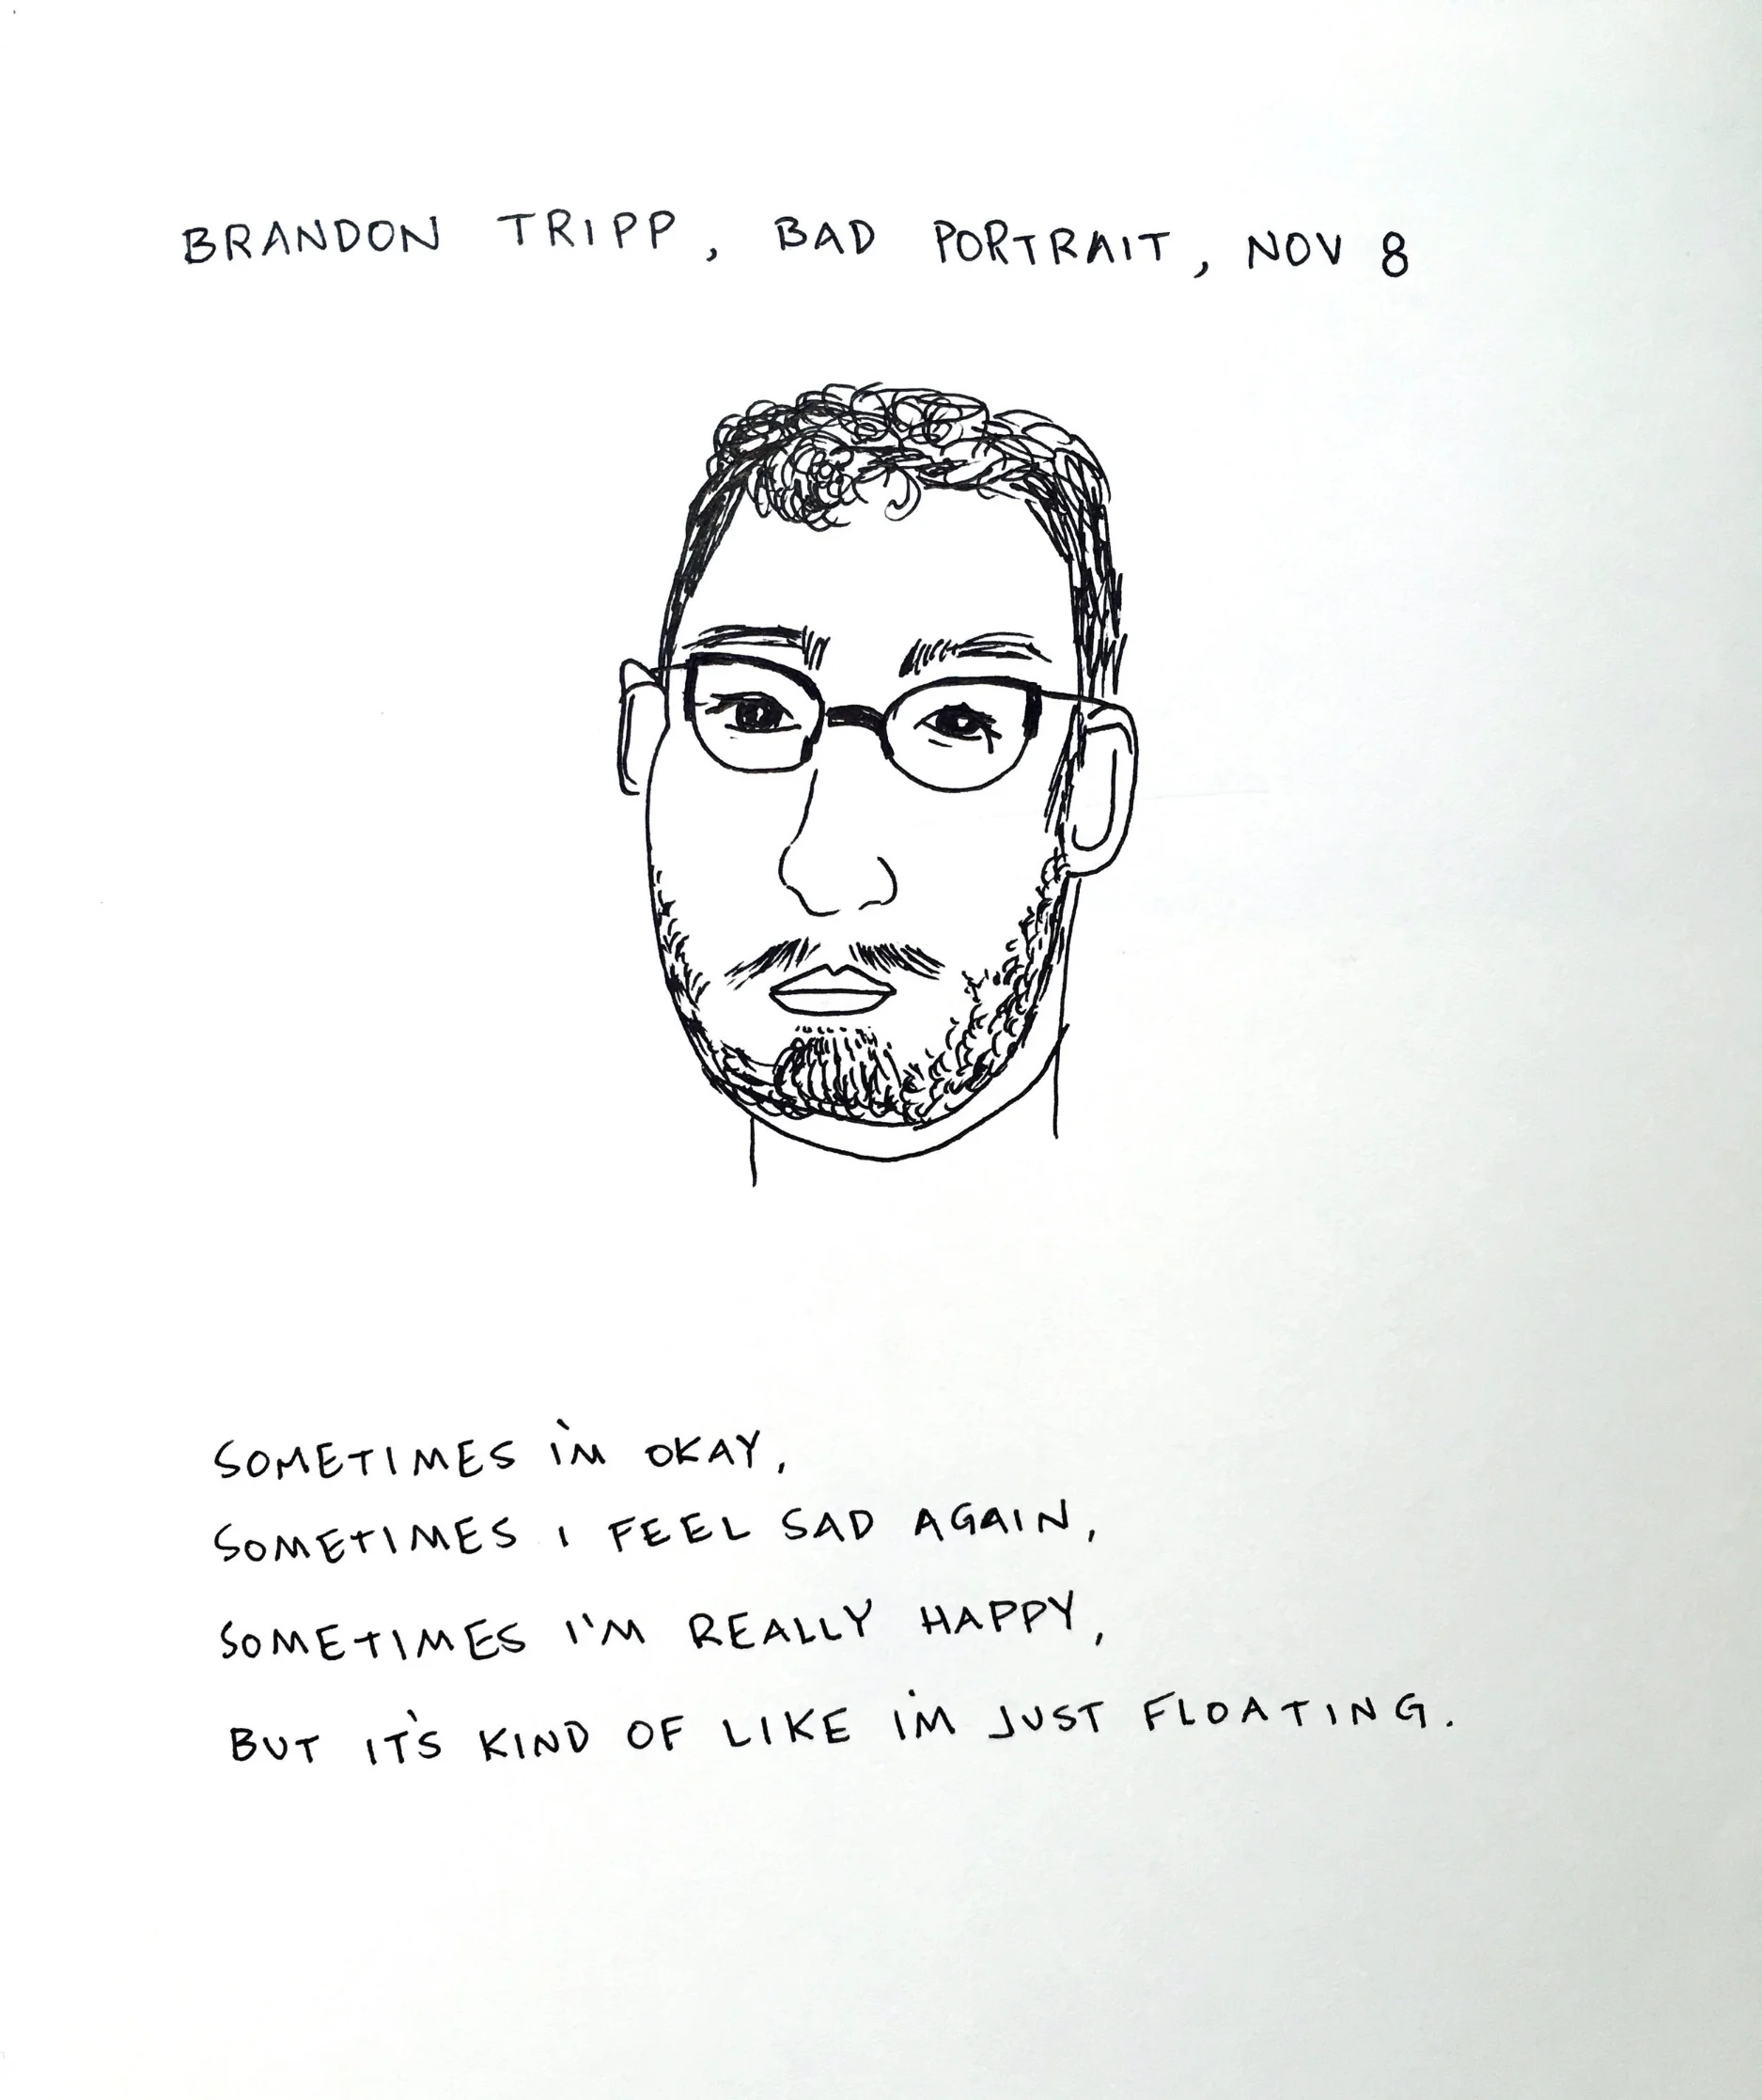 BRANDON TRIPP, BAD PORTRAIT, NOV 8
SOMETIMES I'M OKAY,
SOMETIMES I FEEL SAD AGAIN,
SOMETIMES I'M REALLY HAPPY,
BUT IT'S KIND OF LIKE I'M JUST FLOATING.